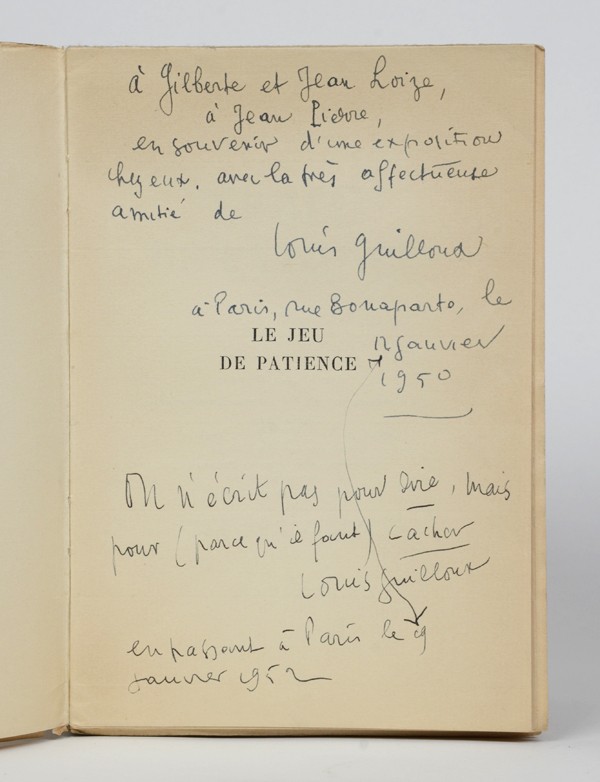 à Gilberte et Jean Loize,
à Jean Pierre,
en souvenir d'une exposition
chez eux, avec la très affectueuse
amitié de
Louis Guilloux
à Paris, rue Bonaparte, le
LE JEU
janvier
DE PATIENCE
1950
On n'écrit pas pour dire, mais
pour (parce qu'il faut) cacher
Louis Guilloux
en passant à Paris le 19
janvier 1952